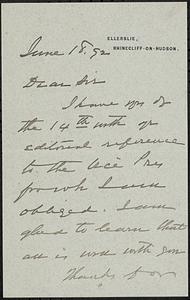 ELLERSLIE,
RHINECLIFF-ON-HUDSON.
June 18, 92
Dear Sir
I have yrs of
the 14th with yr
editorial reference
to the Vice Pres
for wh I am
obliged. I am
glad to learn that
all is well with you
Thanks for